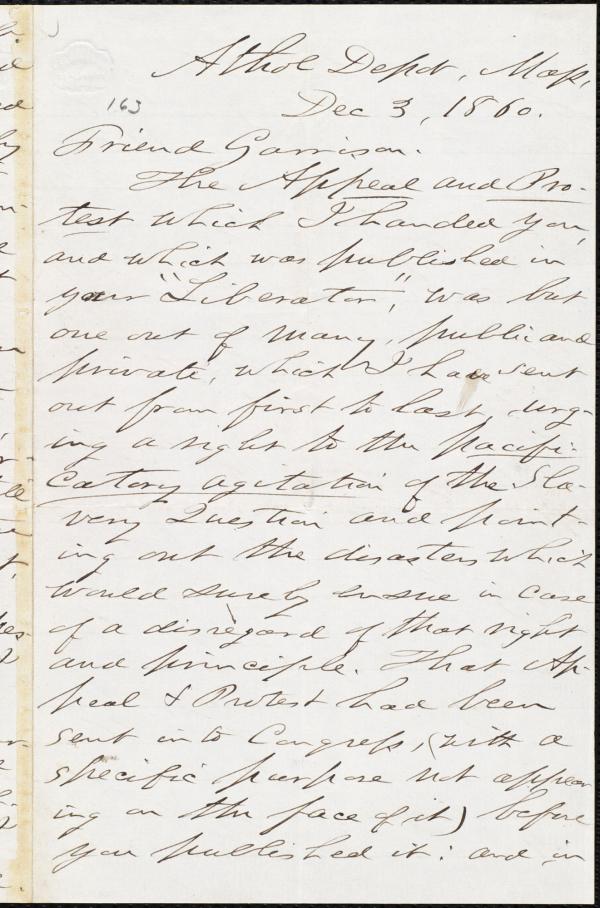 Athol Depot, Mass,
163
Dec 3, 1860.
Friend Garrison.
The Appeal and Pro-
test which I handed you,
and which was published in
your "Liberator", was but
one out of many, public and
private, which I have sent
out from first to last, urg-
ing a right to the pacifi-
catory agitation of the Sla-
very Question and point-
ing out the disasters which
would surely ensue in case
of a disregard of that right
and principle. That Ap-
peal & Protest had been
sent in to Congress, (with a
specific purpose not appear
ing on the face of it) before
you published it: and in